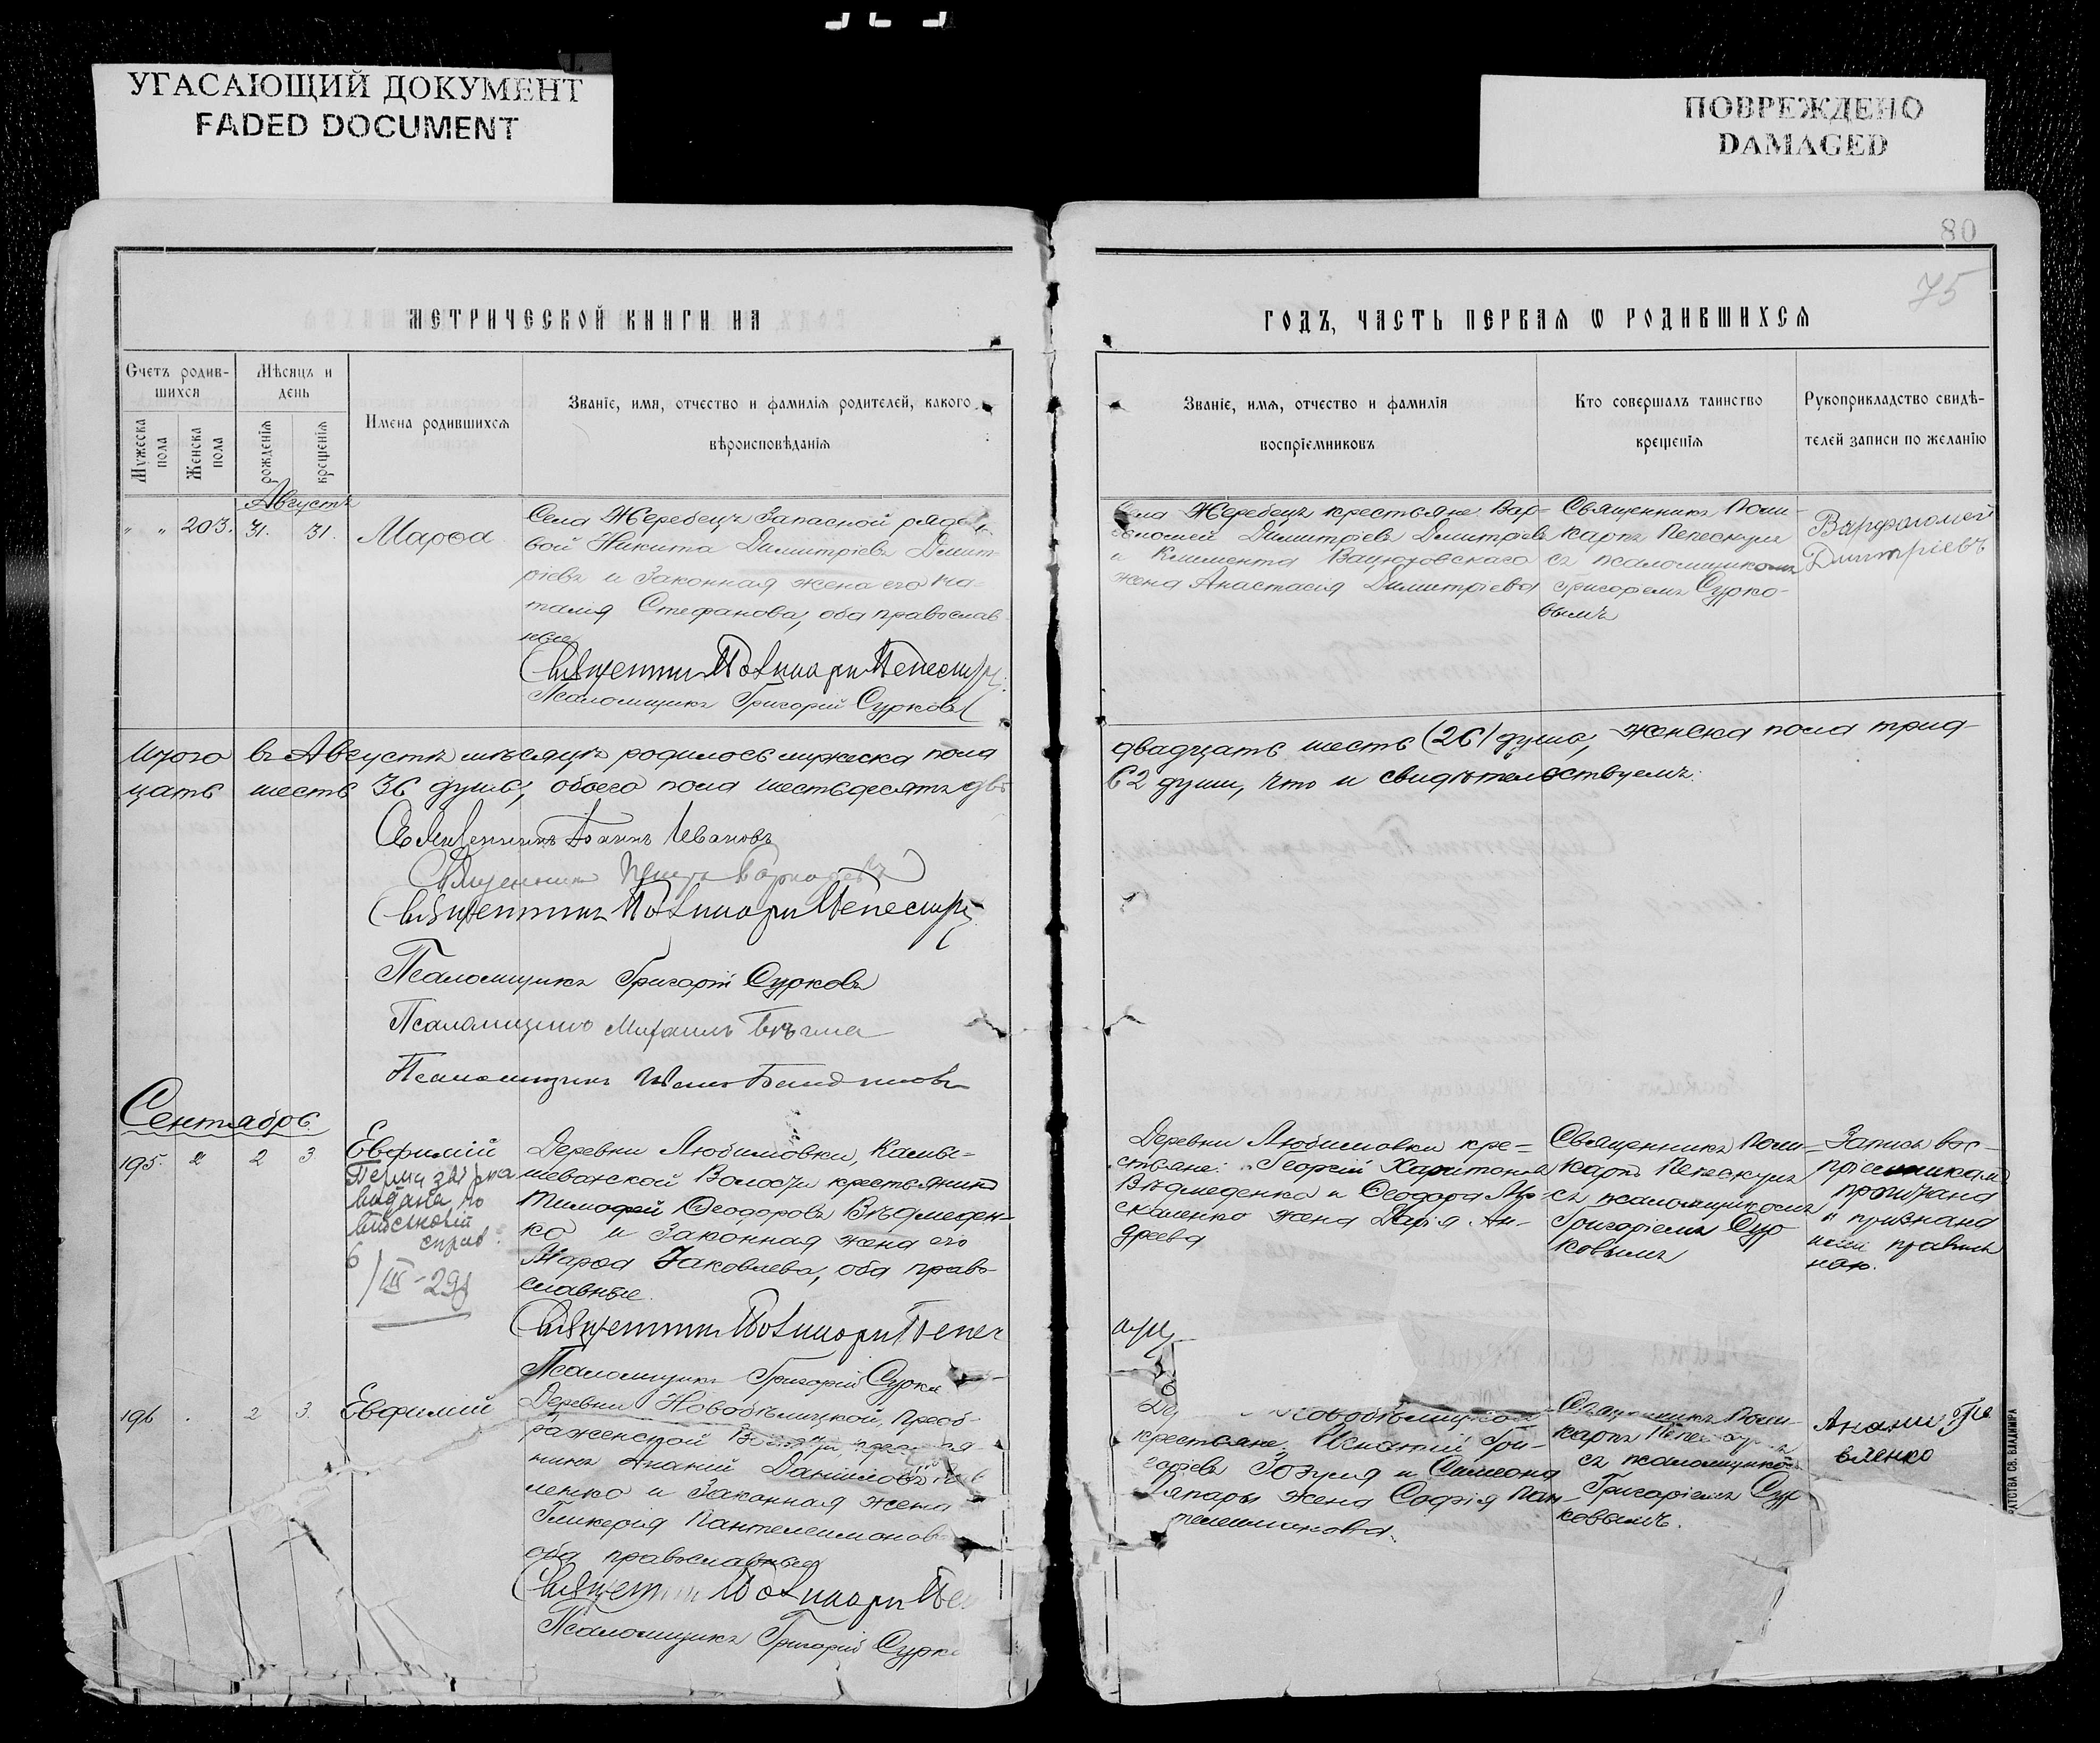 УГАСАЮЩИЙ ДОКУМЕНТ
FADED DOCUMENT
ПОВРЕЖДЕНО
DAMAGED
80
75
МЕТРИЧЕСКОЙ КНИГИ НА
ГОДЪ, ЧАСТЬ ПЕРВАЯ Ѡ РОДИВШИХСЯ
Счетъ родив-
шихся
Мужеска пола
Женска пола
Мѣсяцъ и
день
рожденія
крещенія
Имена родившихся
Званіе, имя, отчество и фамилія родителей, какого
вѣроисповѣданія
Званіе, имя, отчество и фамилія
воспріемниковъ
Кто совершалъ таинство
крещенія
Рукоприкладство свидѣ-
телей записи по желанію
Августъ
" " 203. 31. 31. Марѳа
Села Жеребецъ Запасной рядо-
вой Никита Димитріевъ Димит-
ріевъ и Законная жена его На-
талія Стефанова, оба православ
ные
Священникъ Поликарпъ
Псаломщикъ Григорій Сурковъ
Села Жеребецъ крестьяне Вар=
ѳоломей Димитріевъ Димитріевъ
и Климента
жена Анастасія Димитріева
Священникъ Поли-
карпъ Пепескулъ
съ псаломщикомъ
Григоріемъ Сурко-
вымъ
Варфоломей
Дмитріевъ
Итого въ Августѣ мѣсяцѣ родилось мужеска пола
двадцать шесть (26) душъ, женска пола трид
цать шесть 36 душъ, обоего пола шестьдесятъ двѣ
62 души, что и свидѣтельствуемъ:
Священникъ Іоаннъ Ивановъ
Священникъ
Священникъ Поликарпъ
Псаломщикъ Григорій Сурковъ
Псаломщикъ Михаилъ
Псаломщикъ
Сентябрь.
195. 2 3 Евфимій
видана по
6/III-29
Деревни Любимовки, Камы-
шеватской Волости крестьянинъ
Тимофей Ѳеодоровъ Вѣдмеден-
ко и Законная жена его
Марѳа Іаковлева, оба право-
славные.
Священникъ Поликарпъ Пепес
Псаломщикъ Григорій Сурко
Деревни Любимовки кре=
стьяне: Георгій Харитоновъ
Вѣдмеденко и Ѳеодора
жена Дарія Ан-
дреева
Священникъ Поли-
карпъ Пепескулъ
съ псаломщикомъ
Григоріемъ Сур
ковымъ
Запись вос-
пріемникамъ
прочитана
и признана
ими правиль
ною.
196 . 2 3. Евфимій
Деревни Новобѣлицкой, Преоб-
раженской
нинъ Ананій Даніиловъ
ленко и Законная жена
Гликерія Пантелеимонов
оба православные
Священникъ Поликарпъ Пе
Псаломщикъ Григорій Сурко
Новобѣлицкой
крестьяне: Игнатій Гри-
горіевъ Зозуля и Симеона
жена Софія Пан-
телеимонова.
Священникъ Поли-
карпъ
съ псаломщикомъ
Григоріемъ Сур
ковымъ.
Ананій
вленко
АТСТВА СВ. ВЛАДИМІРА